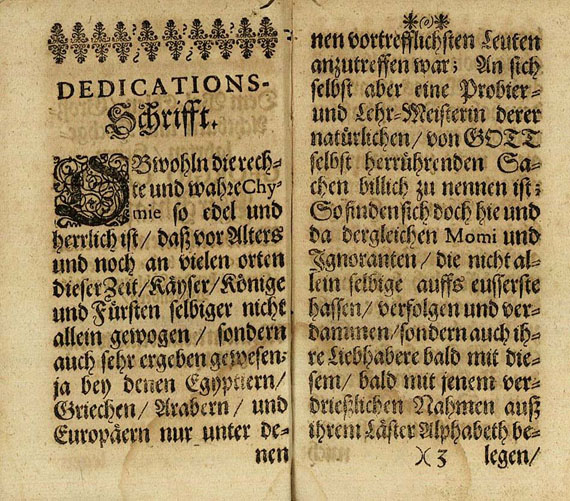 DEDICATIONS-
Schrifft.
OBwohln die rech-
te und wahre Chy-
mie so edel und
herrlich ist/ daß vor Alters
und noch an vielen orten
dieser Zeit/Käyser/Könige
und Fürsten selbiger nicht
allein gewogen / sondern
auch sehr ergeben gewesen;
ja bey denen Egyptiern/
Griechen/ Arabern/ und
Europäern nur unter de-
nen
nen vortrefflichsten Leuten
anzutreffen war; An sich
selbst aber eine Probier-
und Lehr-Meisterin derer
natürlichen/ von GOTT
selbst herrührenden Sa-
chen billich zu nennen ist;
So finden sich doch hie und
da dergleichen Momi und
Ignoranten / die nicht al-
lein selbige auffs eusserste
hassen/ verfolgen und ver-
dammen/sondern auch ih-
re Liebhabere bald mit die-
sem/ bald mit jenem ver-
drießlichen Nahmen auß
ihrem Läster Alphabeth be-
)( 3 legen/